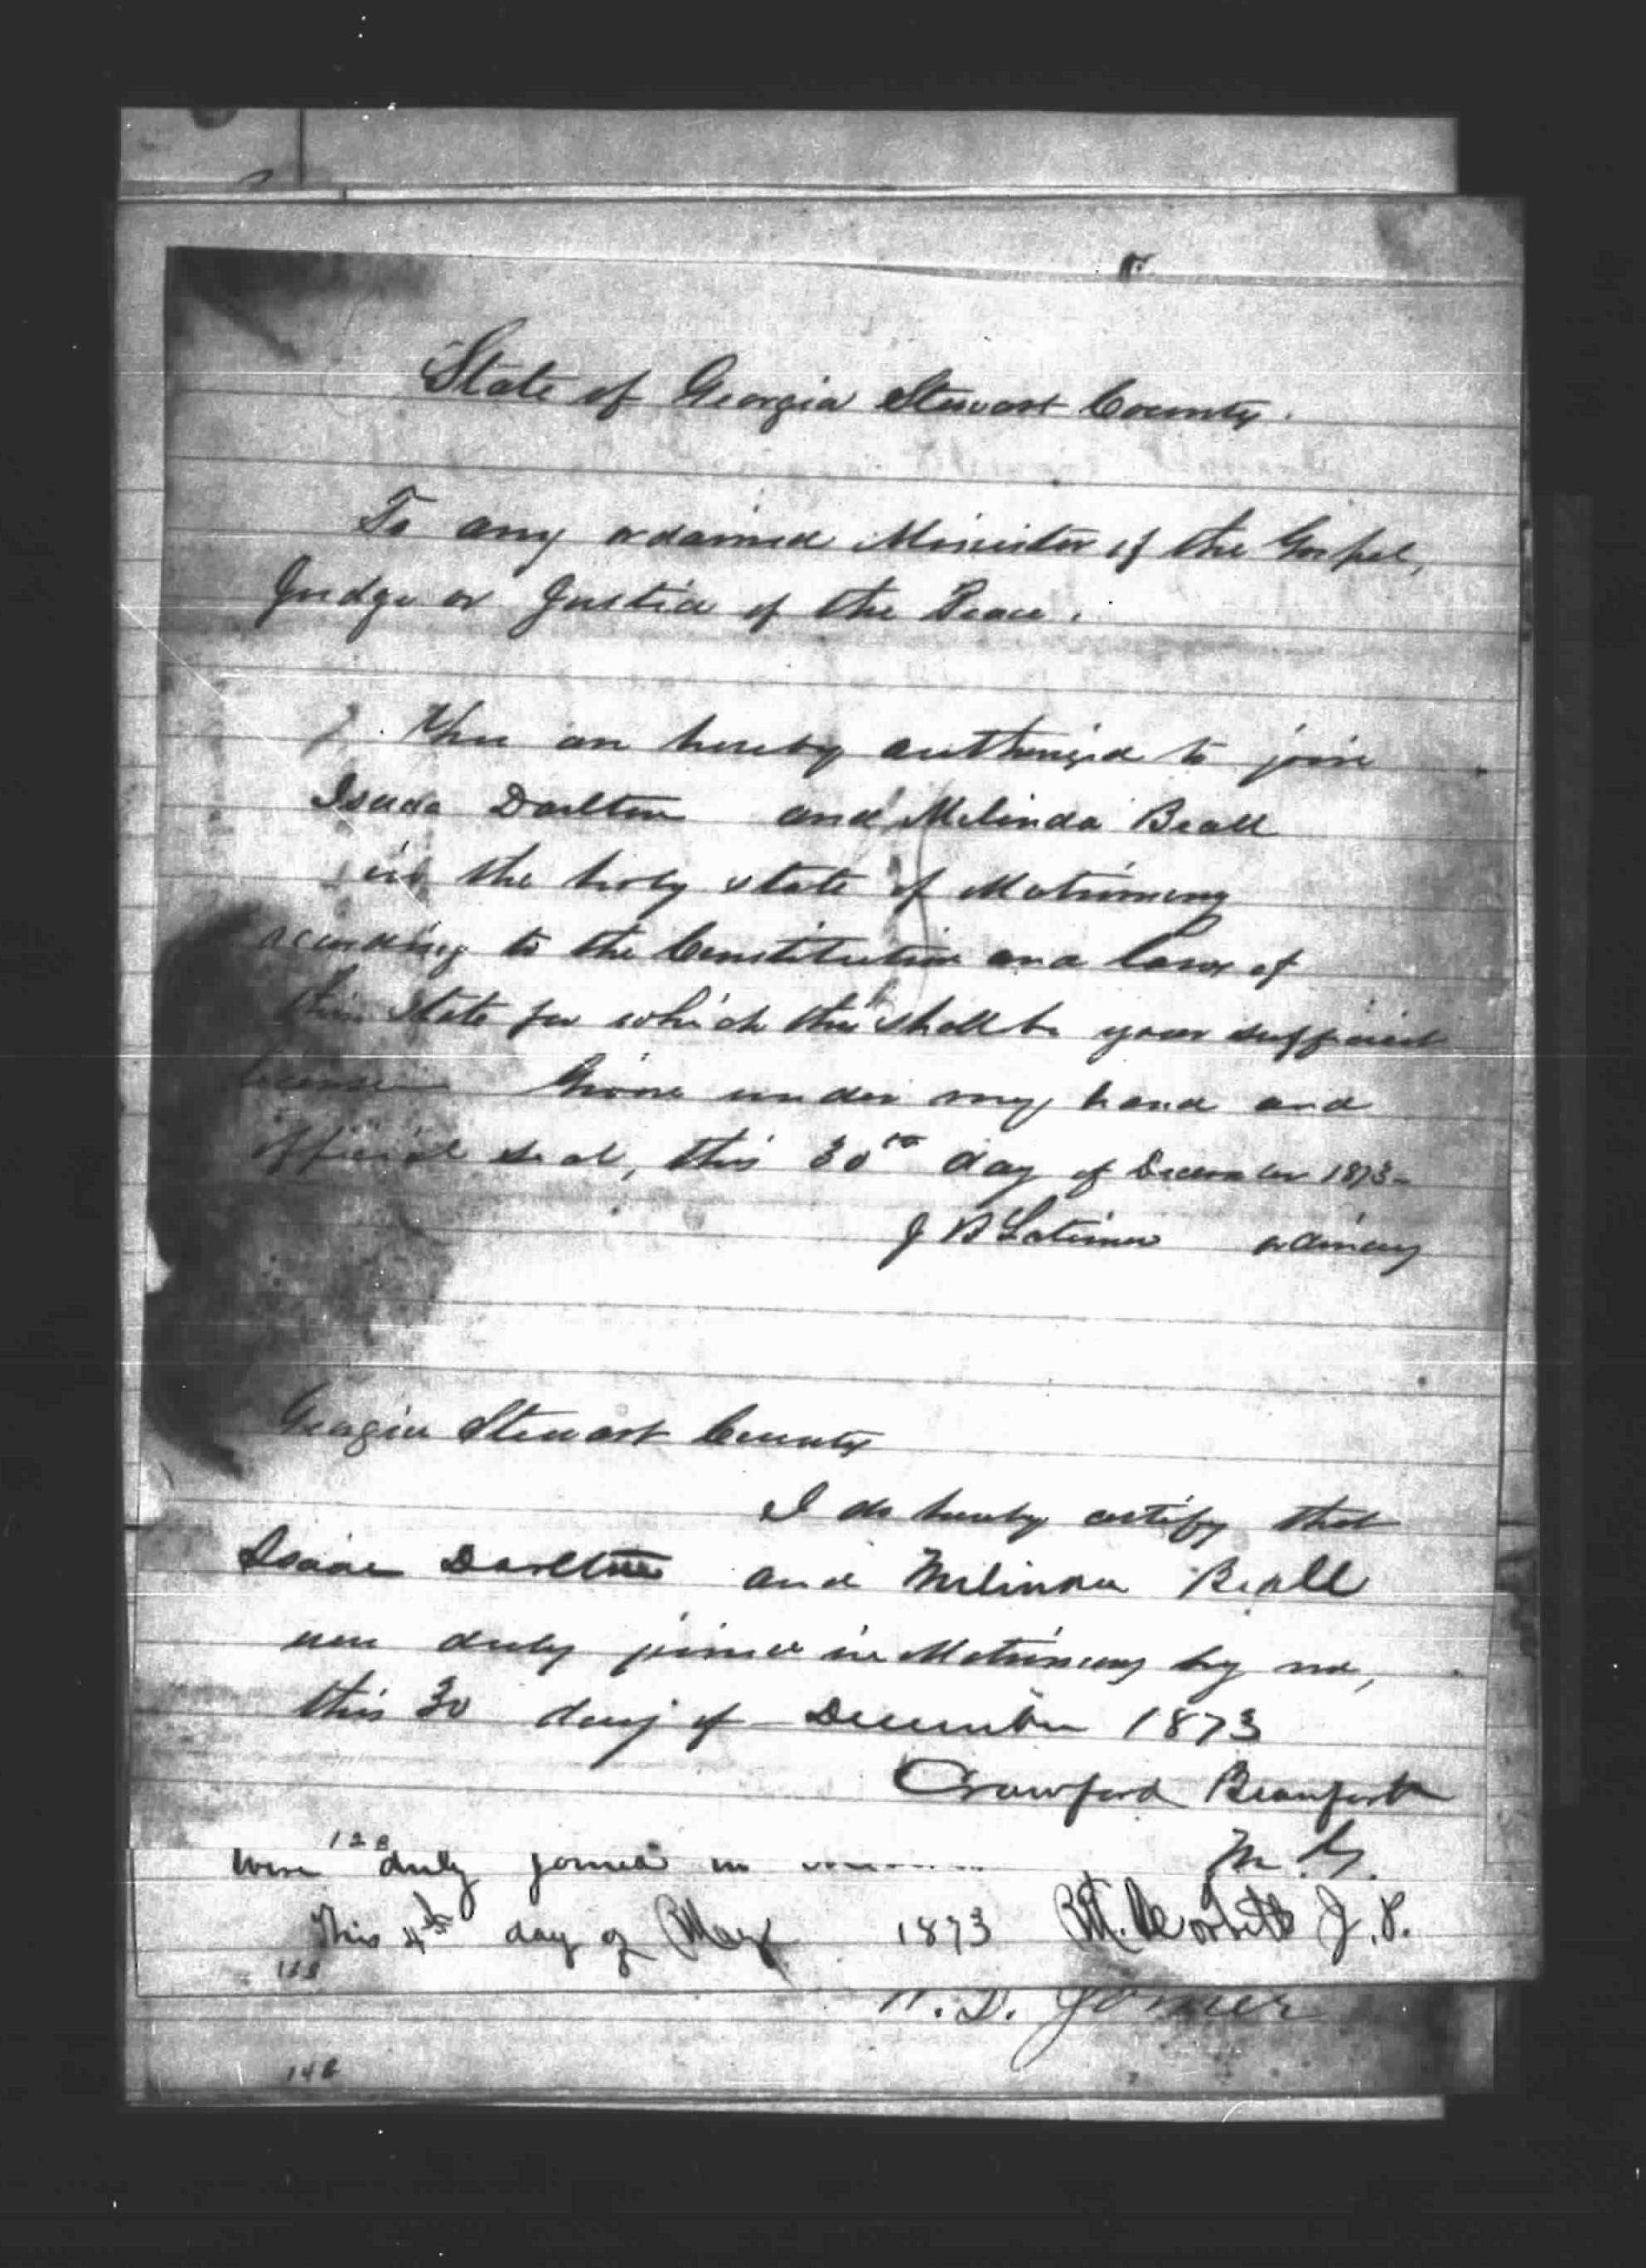 State of Georgia Stewart County.
To any ordained Minister of the Gospel,
Judge or Justice of the Peace.
You are hereby authorized to join
Isaac Darlton and Melinda Beall
in the holy state of Matrimony
according to the Constitution and laws of
this State for which this shall be your sufficient
license Given under my hand and
official seal, this 30th day of December 1873-
J B Latimer ordinary
Georgia Stewart County
I do hereby certify that
Isaac Darlton and Melinda Beall
were duly joined in Matrimony by me,
this 30 day of December 1873
Crawford Beaufort
M. G.
128
were duly joined in
This 4th day of May 1873 J. P.
138
D. Joiner
148